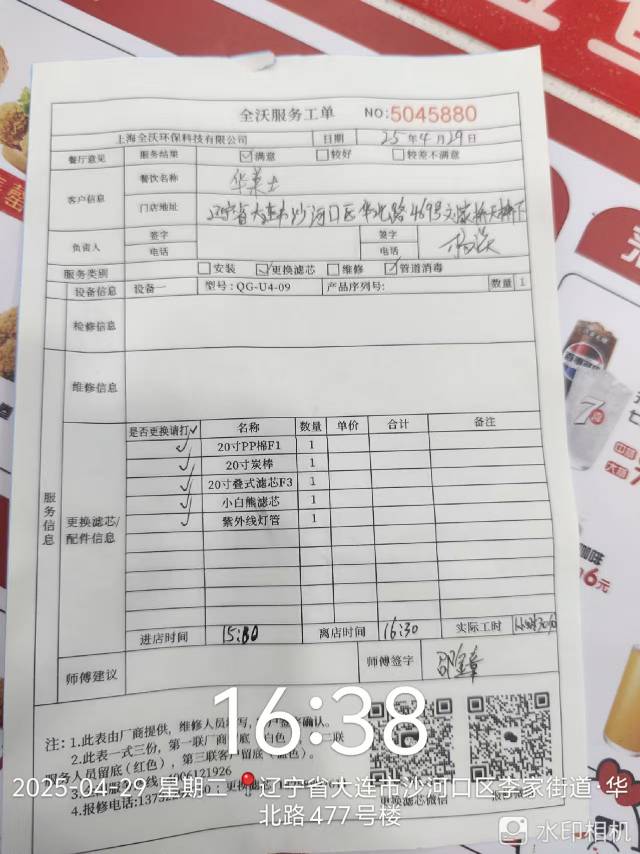 全沃服务工单 NO:5045880
上海全沃环保科技有限公司 日期 25年4月29日
餐厅意见 服务结果 ☑满意 □较好 □较差不满意
客户信息 餐饮名称 华莱士
门店地址 辽宁省大连市沙河口区华北路469号
负责人 签字 签字
电话 电话
服务类别 □安装 ☑更换滤芯 □维修 ☑管道消毒
设备信息 设备一 型号:QG-U4-09 产品序列号: 数量 1
检修信息
维修信息
服务信息
更换滤芯/配件信息
是否更换请打✓ 名称 数量 单价 合计 备注
✓ 20寸PP棉F1 1
✓ 20寸炭棒 1
✓ 20寸叠式滤芯F3 1
✓ 小白熊滤芯 1
✓ 紫外线灯管 1
进店时间 15:30 离店时间 16:30 实际工时
师傅建议 师傅签字
16:38
注:1.此表由厂商提供,维修人员填写,
2.此表一式三份,第一联厂商
服务人员留底(红色),第三联客户留底
4.报修电话:
更换滤芯微信
2025-04-29 星期二 辽宁省大连市沙河口区李家街道·华
北路477号楼
水印相机
7
6元